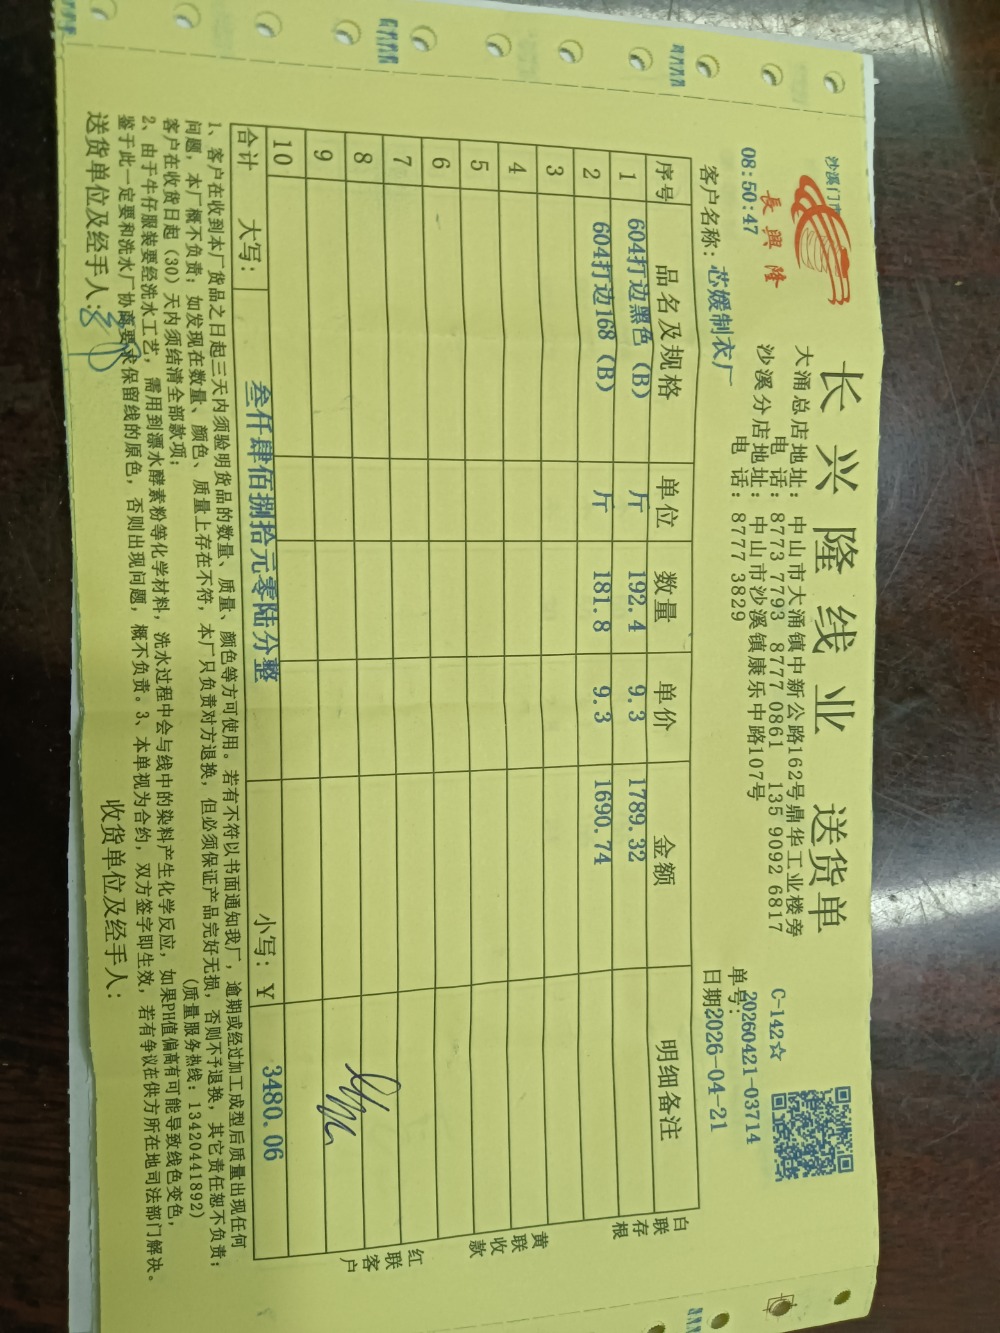 长兴隆线业 送货单
長興隆
沙溪门市
08:50:47
大涌总店地址：中山市大涌镇中新公路162号鼎华工业楼旁
电话：8773 7793 8777 0861 135 9092 6817
沙溪分店地址：中山市沙溪镇康乐中路107号
电话：8777 3829
C-142☆
单号：20260421-03714
客户名称：芯媛制衣厂
日期2026-04-21
序号 品名及规格 单位 数量 单价 金额 明细备注
1 604打边黑色（B） 斤 192.4 9.3 1789.32
2 604打边168（B） 斤 181.8 9.3 1690.74
3
4
5
6
7
8
9
10
合计 大写： 叁仟肆佰捌拾元零陆分整 小写：￥ 3480.06
白联存根
黄联收款
红联客户
1、客户在收到本厂货品之日起三天内须验明货品的数量、质量、颜色等方可使用。若有不符以书面通知我厂，逾期或经过加工成型后质量出现任何
问题，本厂概不负责；如发现在数量、颜色、质量上存在不符，本厂只负责对方退换，但必须保证产品完好无损，否则不予退换，其它责任恕不负责；
客户在收货日起（30）天内须结清全部款项；
（质量服务热线：13420441892）
2、由于牛仔服装要经洗水工艺，需用到漂水酵素粉等化学材料，洗水过程中会与线中的染料产生化学反应，如果PH值偏高有可能导致线色变色，
鉴于此一定要和洗水厂协商要求保留线的原色，否则出现问题，概不负责。3、本单视为合约，双方签字即生效，若有争议在供方所在地司法部门解决。
送货单位及经手人：
收货单位及经手人：